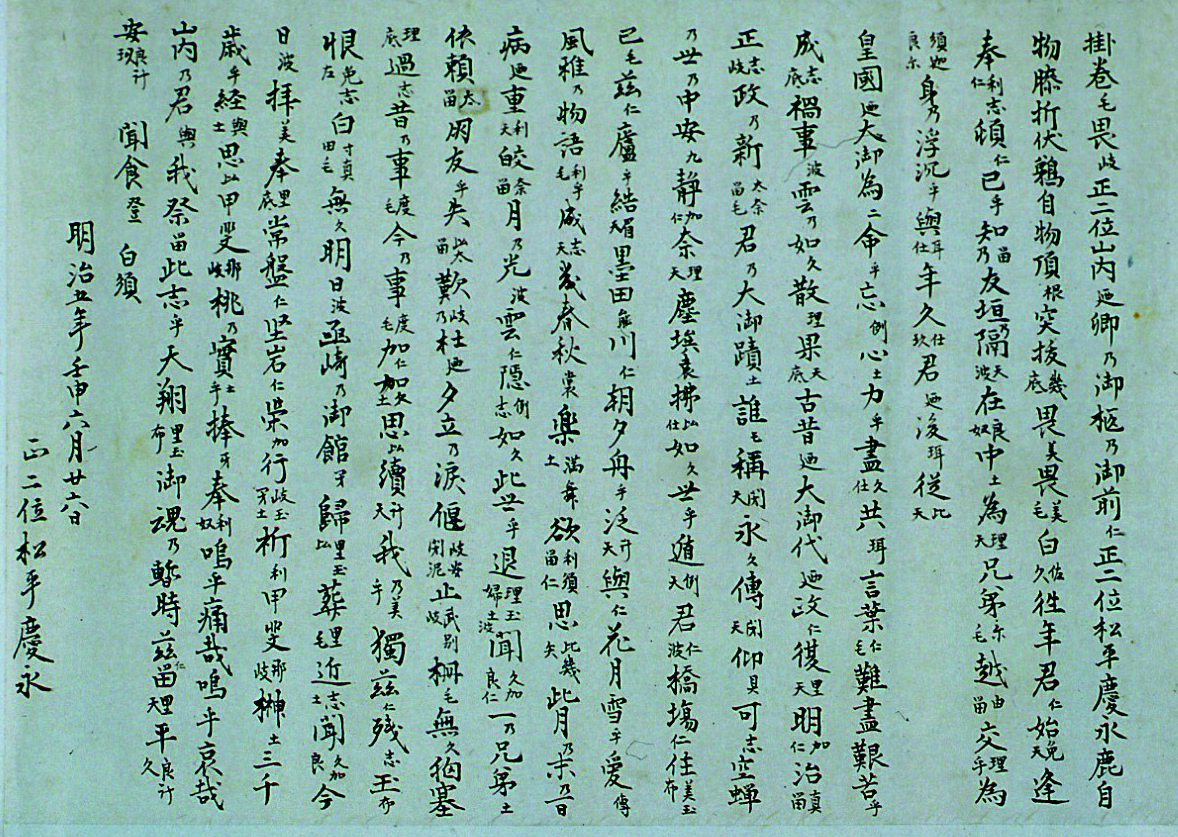 掛巻毛畏歧正二位山内廼卿乃御柩乃御前仁正二位松平慶永鹿自
物膝折伏鶉自物頂根突抜幾底畏美畏美毛白佐久徃年君仁始免天逢
奉利志仁頃仁己乎知留乃友垣乃隔天波在良奴中土為理天兄弟尓毛越由留交理乎為
須廼良尓身乃浮沉乎與耳仕年久仕玖君廼後珥従比天
皇國廼大御為二命乎忘例心土力乎盡久仕共珥言葉仁毛難盡艱苦乎
成志底禍事波雲乃如久散理果天底古昔廼大御代廼政仁復里天明加仁治真留
正志歧政乃新太奈留毛君乃大御蹟土誰毛稱閇天永久傳閇天仰貝可志空蝉
乃世乃中安九静加仁奈理天塵埃袁拂比仕如久世乎遁例天君仁波橋場仁住美玉布
已毛茲仁廬乎結眉墨田能川仁朝夕舟乎泛計天與仁花月雪乎愛傳
風雅乃物語利乎毛成志天幾春秋裳樂土満舞欲利須留仁思比幾矢此月乃末乃一日
病廼重利天皎奈留月乃光波雲仁隠例志如久此世乎退理玉婦土波聞久加良仁一乃兄弟土
依賴太留朋友乎失比太留歎歧杜廼夕立乃淚偃歧安閇泥止武別歧柵毛無久狛塞
理底過志昔乃事度毛今乃事度毛加仁加久土思比續計天我乃美乎獨茲仁殘志玉布
恨免志左白寸真田毛無久明日波函崎乃御館牙歸里玉比葬里毛近志土聞久加良今
日波拝美奉里底常盤仁堅岩仁榮加行歧玉牙土祈利甲斐耶歧榊土三千
歳乎経與土思比甲斐那歧桃乃實土乎捧牙奉利奴嗚乎痛哉嗚乎哀哉
山内乃君與我祭留此志乎天翔里玉布御魂乃暫時茲仁留里天平良計久
安良計玖聞食登白須
明治五年壬申六月廿六日
正二位松平慶永